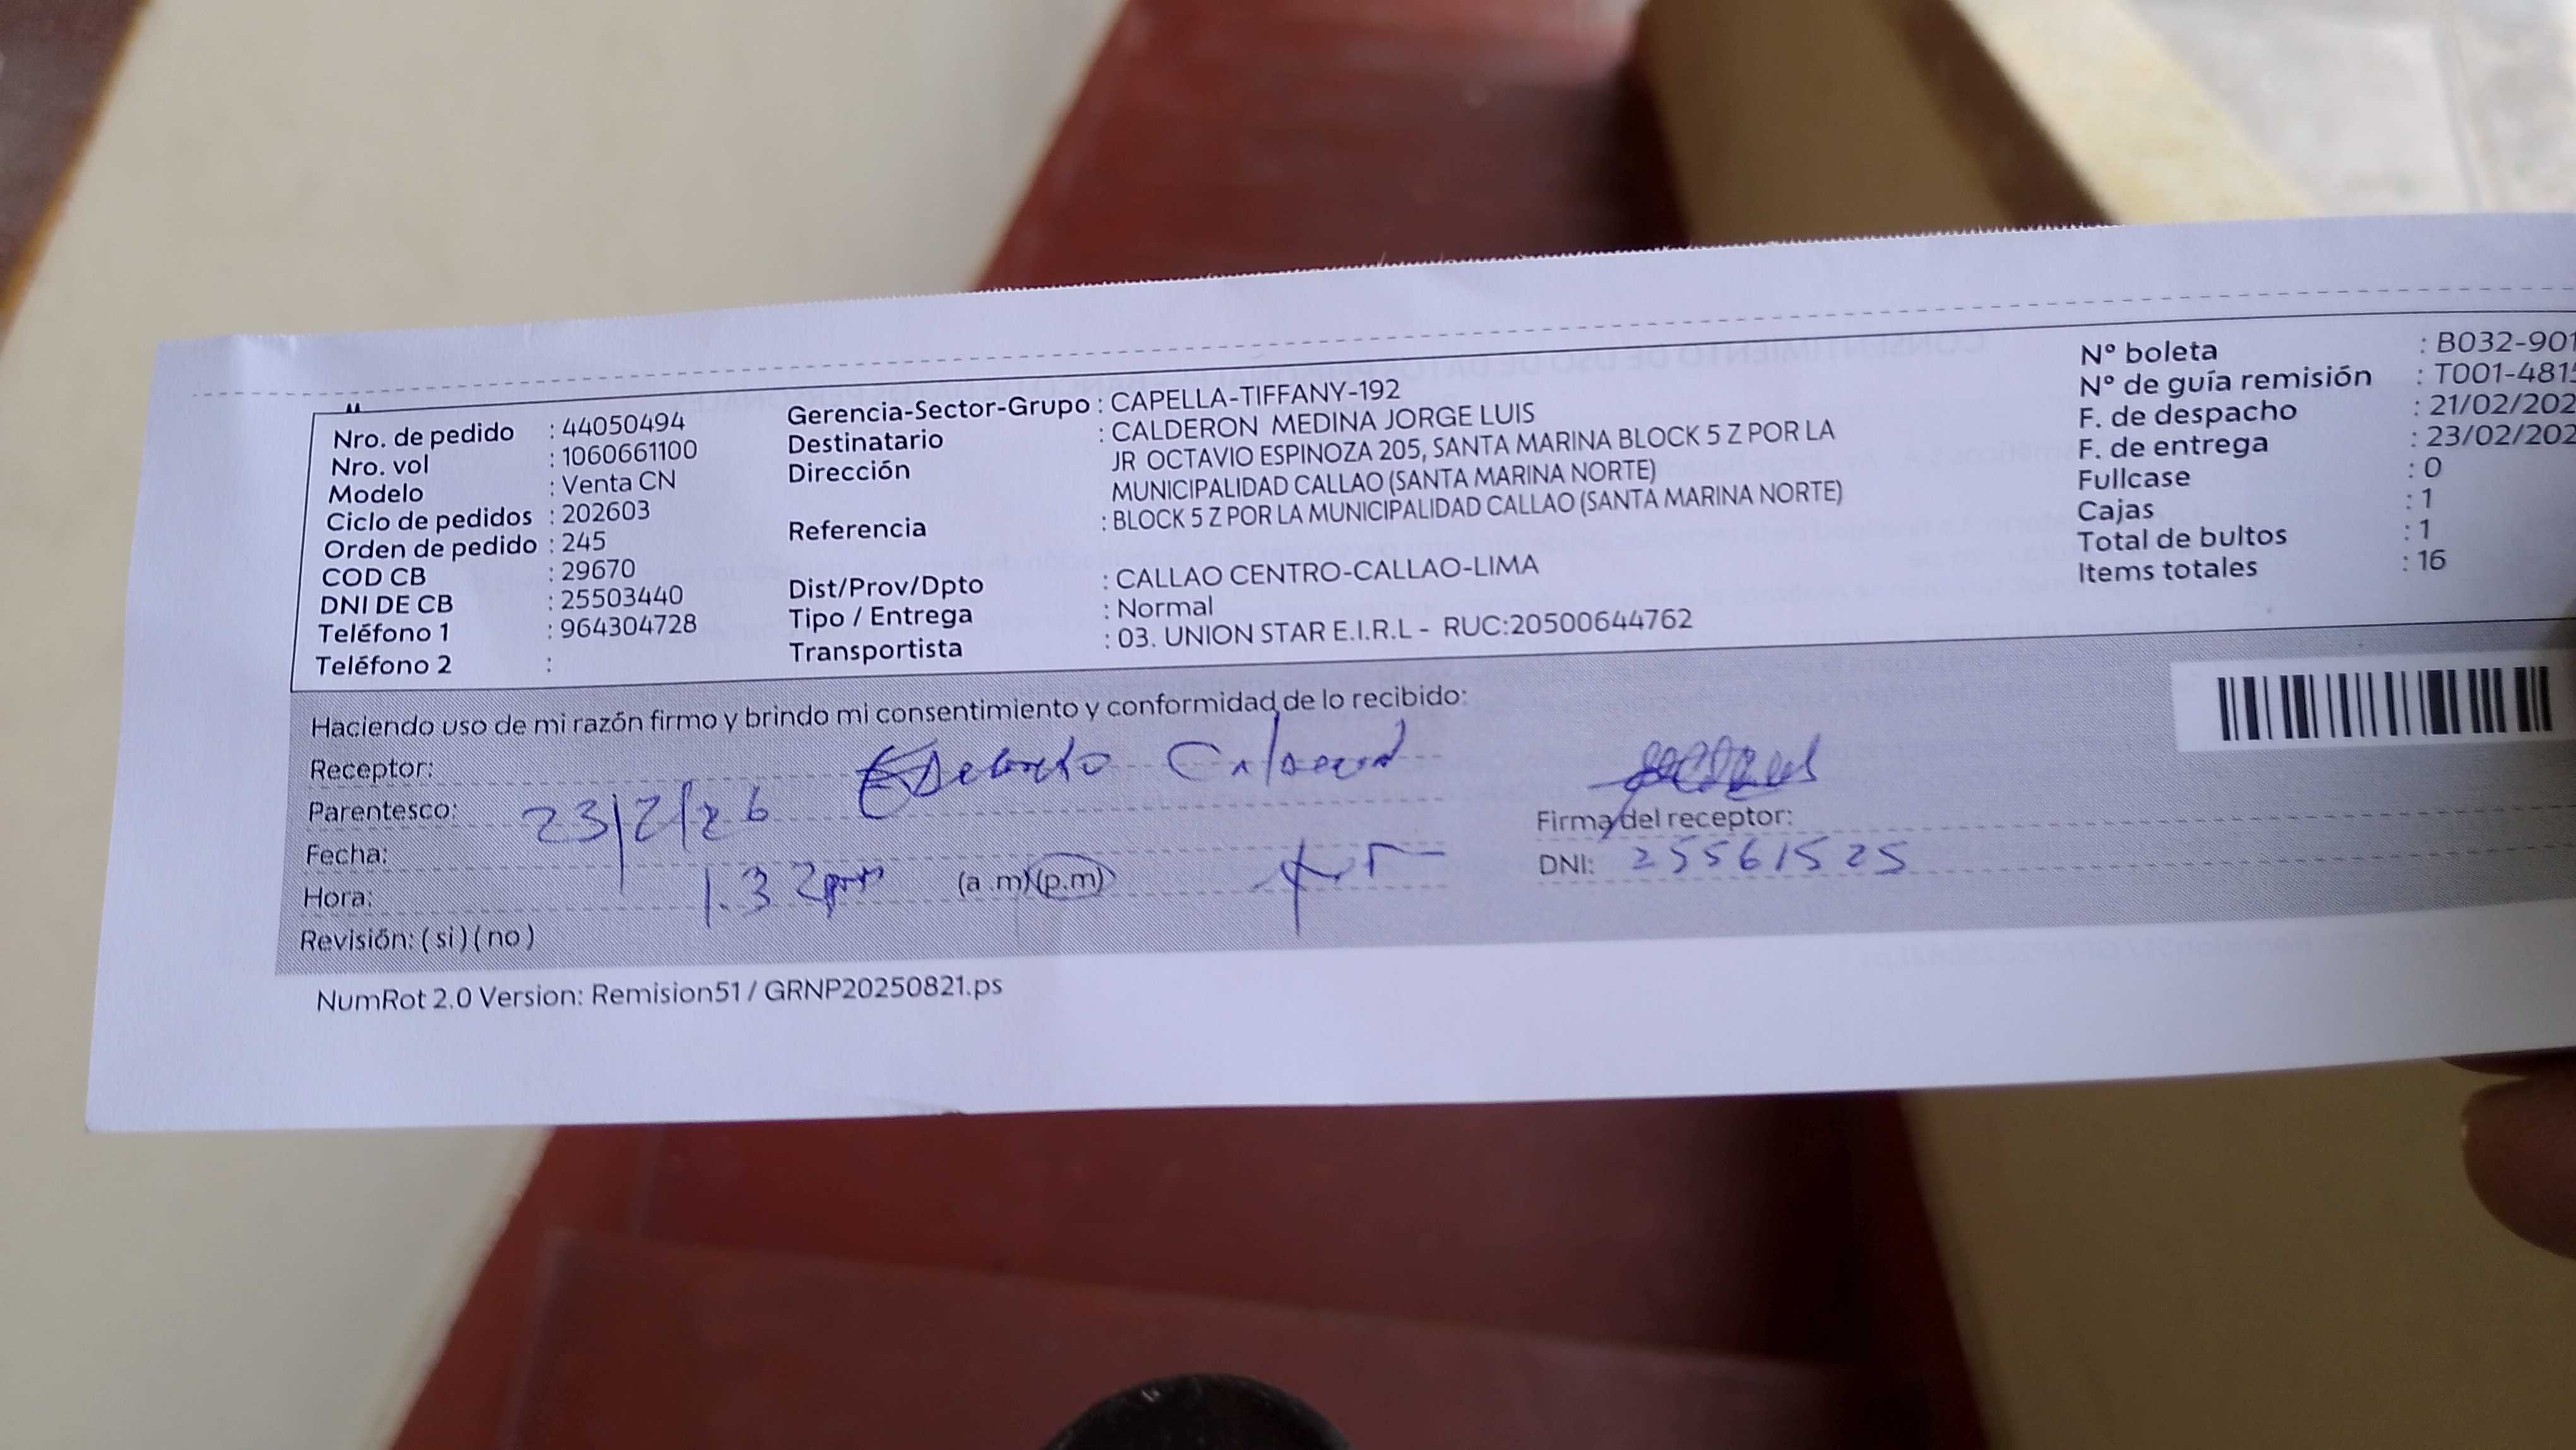 Nro. de pedido : 44050494
Nro. vol : 1060661100
Modelo : Venta CN
Ciclo de pedidos : 202603
Orden de pedido : 245
COD CB : 29670
DNI DE CB : 25503440
Teléfono 1 : 964304728
Teléfono 2 :
Gerencia-Sector-Grupo : CAPELLA-TIFFANY-192
Destinatario : CALDERON MEDINA JORGE LUIS
Dirección JR OCTAVIO ESPINOZA 205, SANTA MARINA BLOCK 5 Z POR LA
MUNICIPALIDAD CALLAO (SANTA MARINA NORTE)
Referencia : BLOCK 5 Z POR LA MUNICIPALIDAD CALLAO (SANTA MARINA NORTE)
Dist/Prov/Dpto : CALLAO CENTRO-CALLAO-LIMA
Tipo / Entrega : Normal
Transportista : 03. UNION STAR E.I.R.L - RUC:20500644762
N° boleta : B032-901
N° de guía remisión : T001-4815
F. de despacho : 21/02/202
F. de entrega : 23/02/202
Fullcase : 0
Cajas : 1
Total de bultos : 1
Items totales : 16
Haciendo uso de mi razón firmo y brindo mi consentimiento y conformidad de lo recibido:
Receptor:
Parentesco:
Fecha: 23/2/26
Hora: 1.32pm (a.m)(p.m)
Revisión: (si) (no)
Firma del receptor:
DNI: 25561525
NumRot 2.0 Version: Remision51 / GRNP20250821.ps